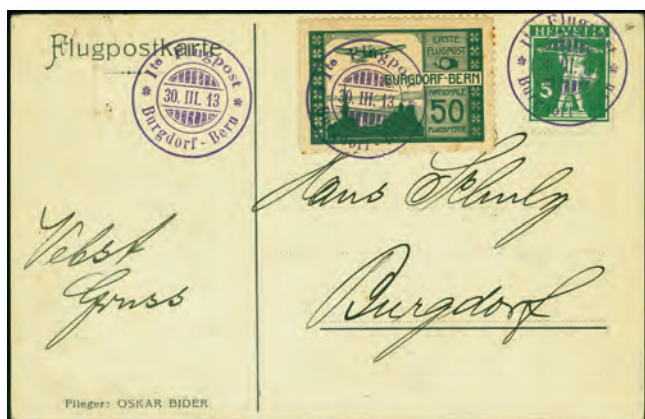 Flugpostkarte
Ite Flugpost
30. III. 13
Burgdorf - Bern
ERSTE
FLUGPOST
BURGDORF-BERN
NATIONALE
50
FLUGSPENDE
Ite Flugpost
30. III. 13
HELVETIA
5
Ite Flugpost
Hans Schulz
Burgdorf
Gruss
Flieger: OSKAR BIDER